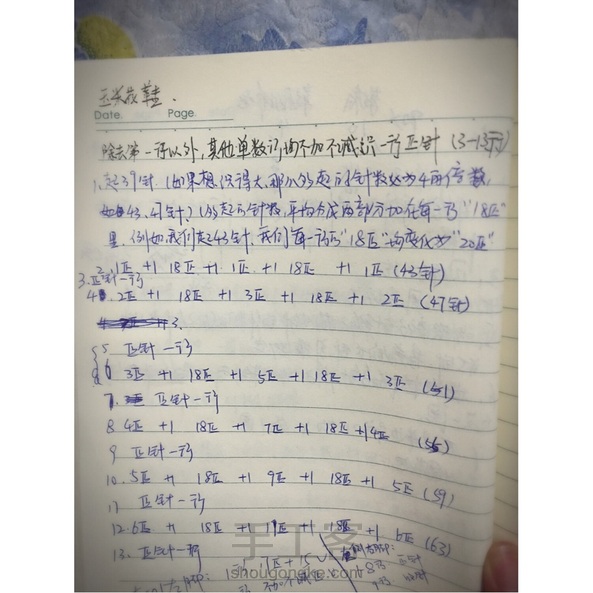 Date.
Page.
除去第一行以外,其他单数行均不加不减织一行正针 (3-13行)
1,起39针 (如果想织得大,那么多起的针数必为4的倍数,
43,47针?) 多起的针数,平均分成两部分加在每一行"18正"
里,例如,我们起43针,我们每一行的"18正"均变化为"20正"
2. 1正 +1 18正 +1 1正 +1 18正 +1 1正 (43针)
3.正针一行
4. 2正 +1 18正 +1 3正 +1 18正 +1 2正 (47针)
5 正针一行
6 3正 +1 18正 +1 5正 +1 18正 +1 3正 (51)
7. 正针一行
8. 4正 +1 18正 +1 7正 +1 18正 +1 4正 (55)
9 正针一行
10. 5正 +1 18正 +1 9正 +1 18正 +1 5正 (59)
11 正针一行
12. 6正 +1 18正 +1 11正 +1 18正 +1 6正 (63)
13. 正针一行
手工客
shougongke.com